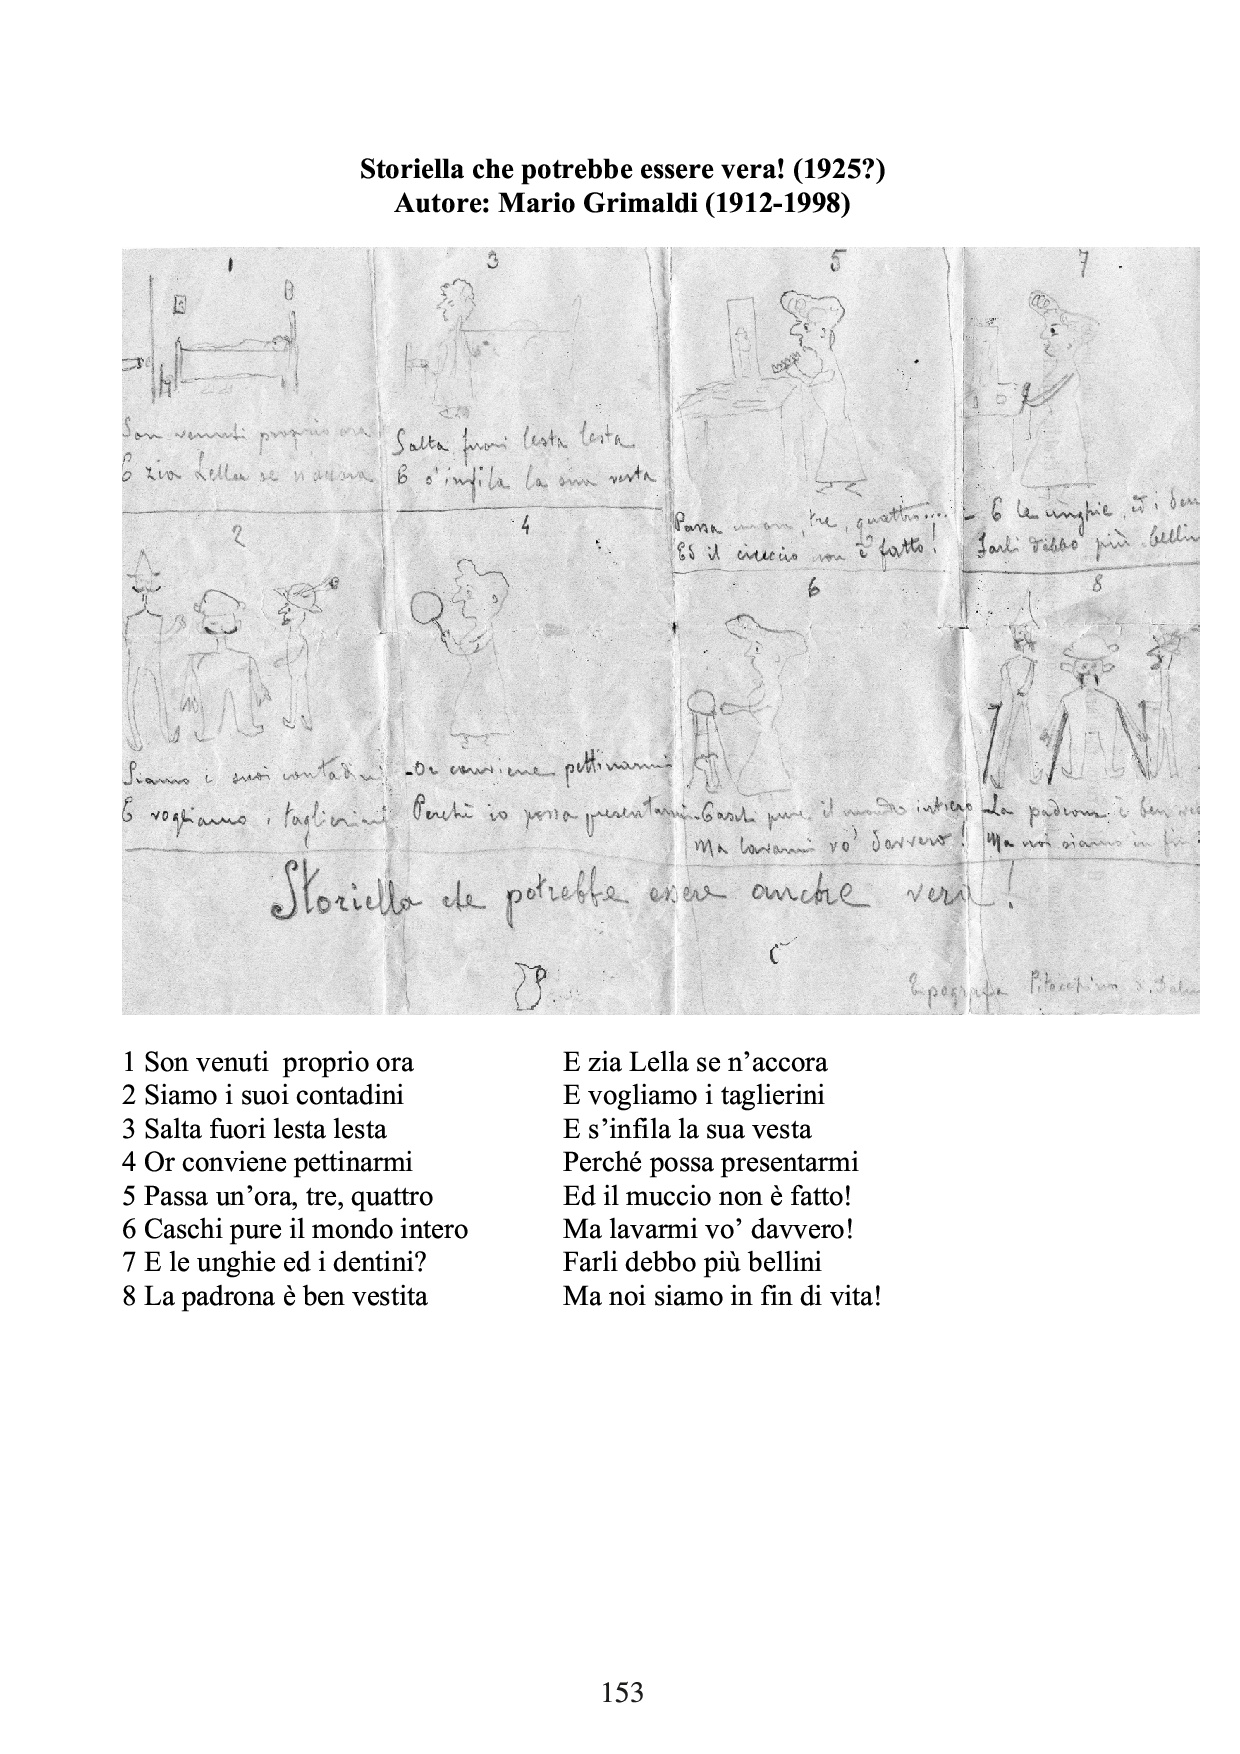 Storiella che potrebbe essere vera! (1925?)
Autore: Mario Grimaldi (1912-1998)
1
Son venuti proprio ora
E zia Lella se n'accora
2
Siamo i suoi contadini
E vogliamo i taglierini
3
Salta fuori lesta lesta
E s'infila la sua vesta
4
-Or conviene pettinarmi
Perchè io possa presentarmi
5
Passa un'ora, tre, quattro....
Ed il non è fatto!
6
-Caschi pure il mondo intiero
Ma lavarmi vo' davvero!
7
- E le unghie, ed i den
Farli debbo più bellin
8
-La padrona è ben ves
Ma noi siamo in fin
Storiella che potrebbe essere anche vera!
1 Son venuti proprio ora E zia Lella se n'accora
2 Siamo i suoi contadini E vogliamo i taglierini
3 Salta fuori lesta lesta E s'infila la sua vesta
4 Or conviene pettinarmi Perché possa presentarmi
5 Passa un'ora, tre, quattro Ed il muccio non è fatto!
6 Caschi pure il mondo intero Ma lavarmi vo' davvero!
7 E le unghie ed i dentini? Farli debbo più bellini
8 La padrona è ben vestita Ma noi siamo in fin di vita!
153